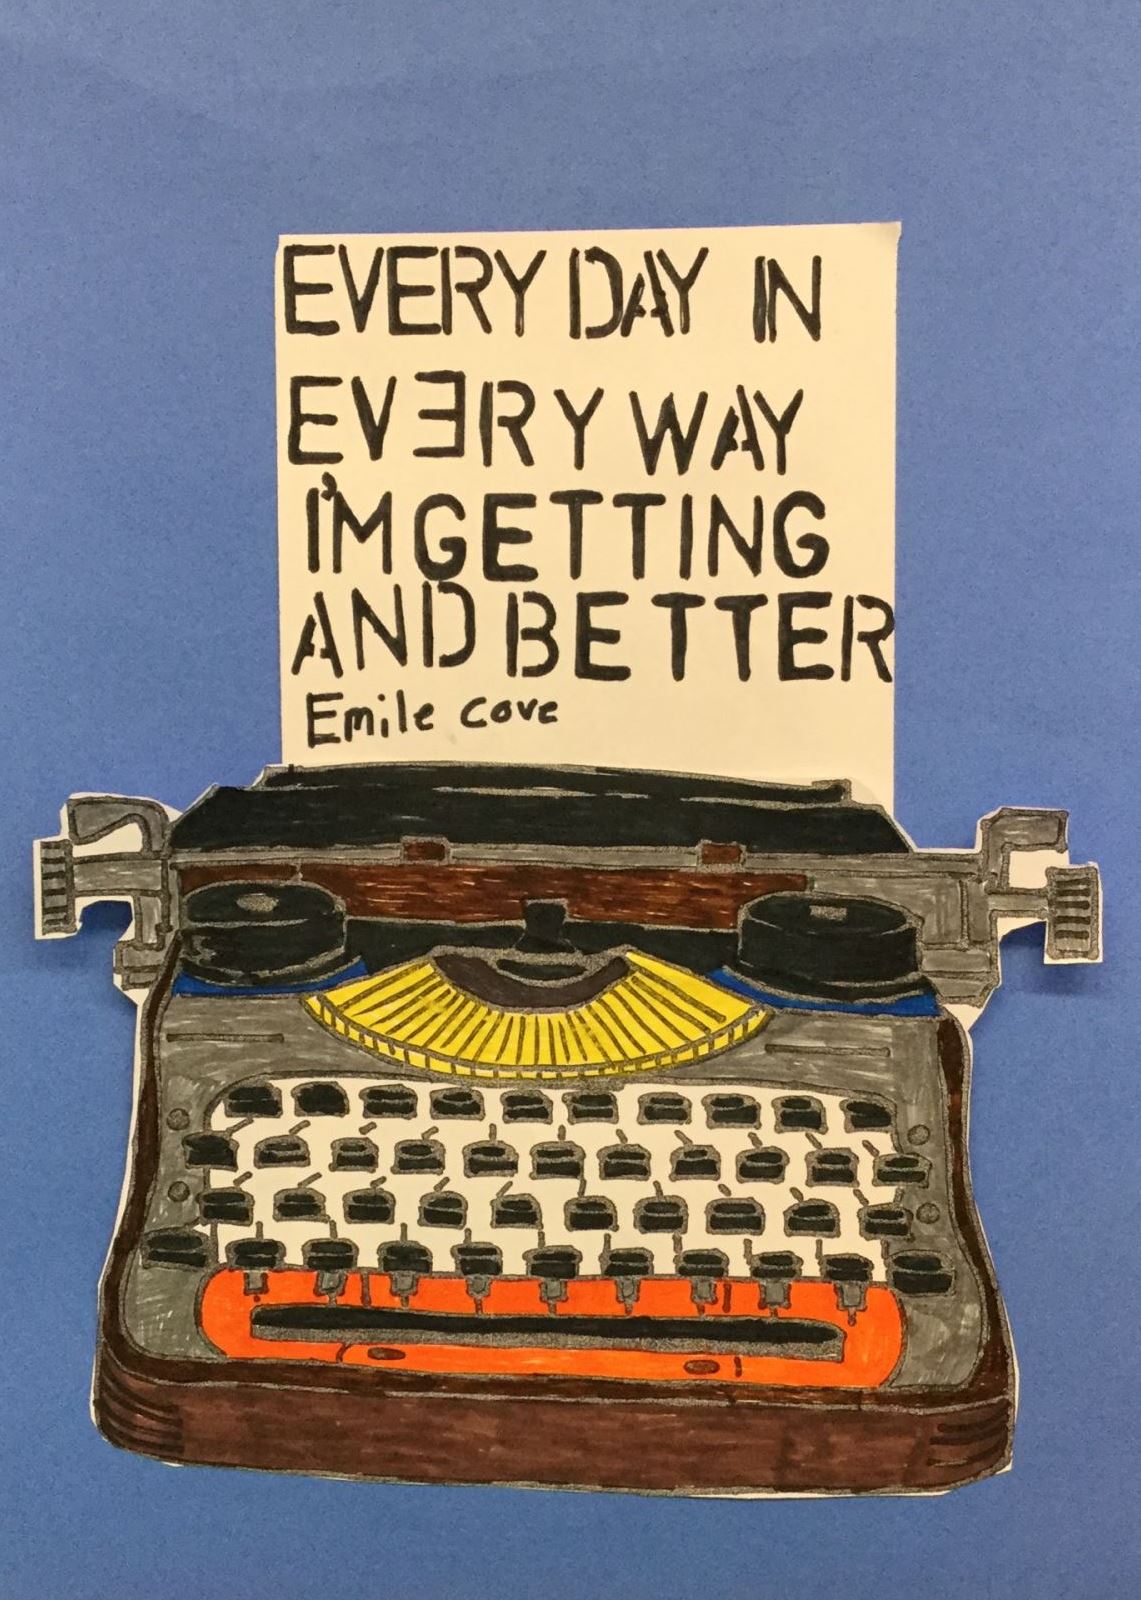 EVERY DAY IN
EVERY WAY
I'M GETTING
AND BETTER
Emile Cove